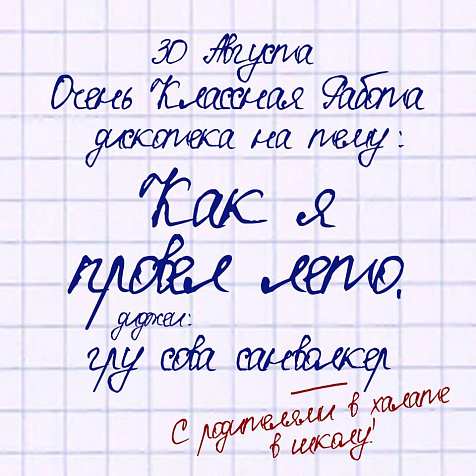 30 Августа
Очень Классная Работа
дискотека на тему:
Как я
провел лето.
диджеи:
гру сова санволкер
С родителями в халате
в школу!